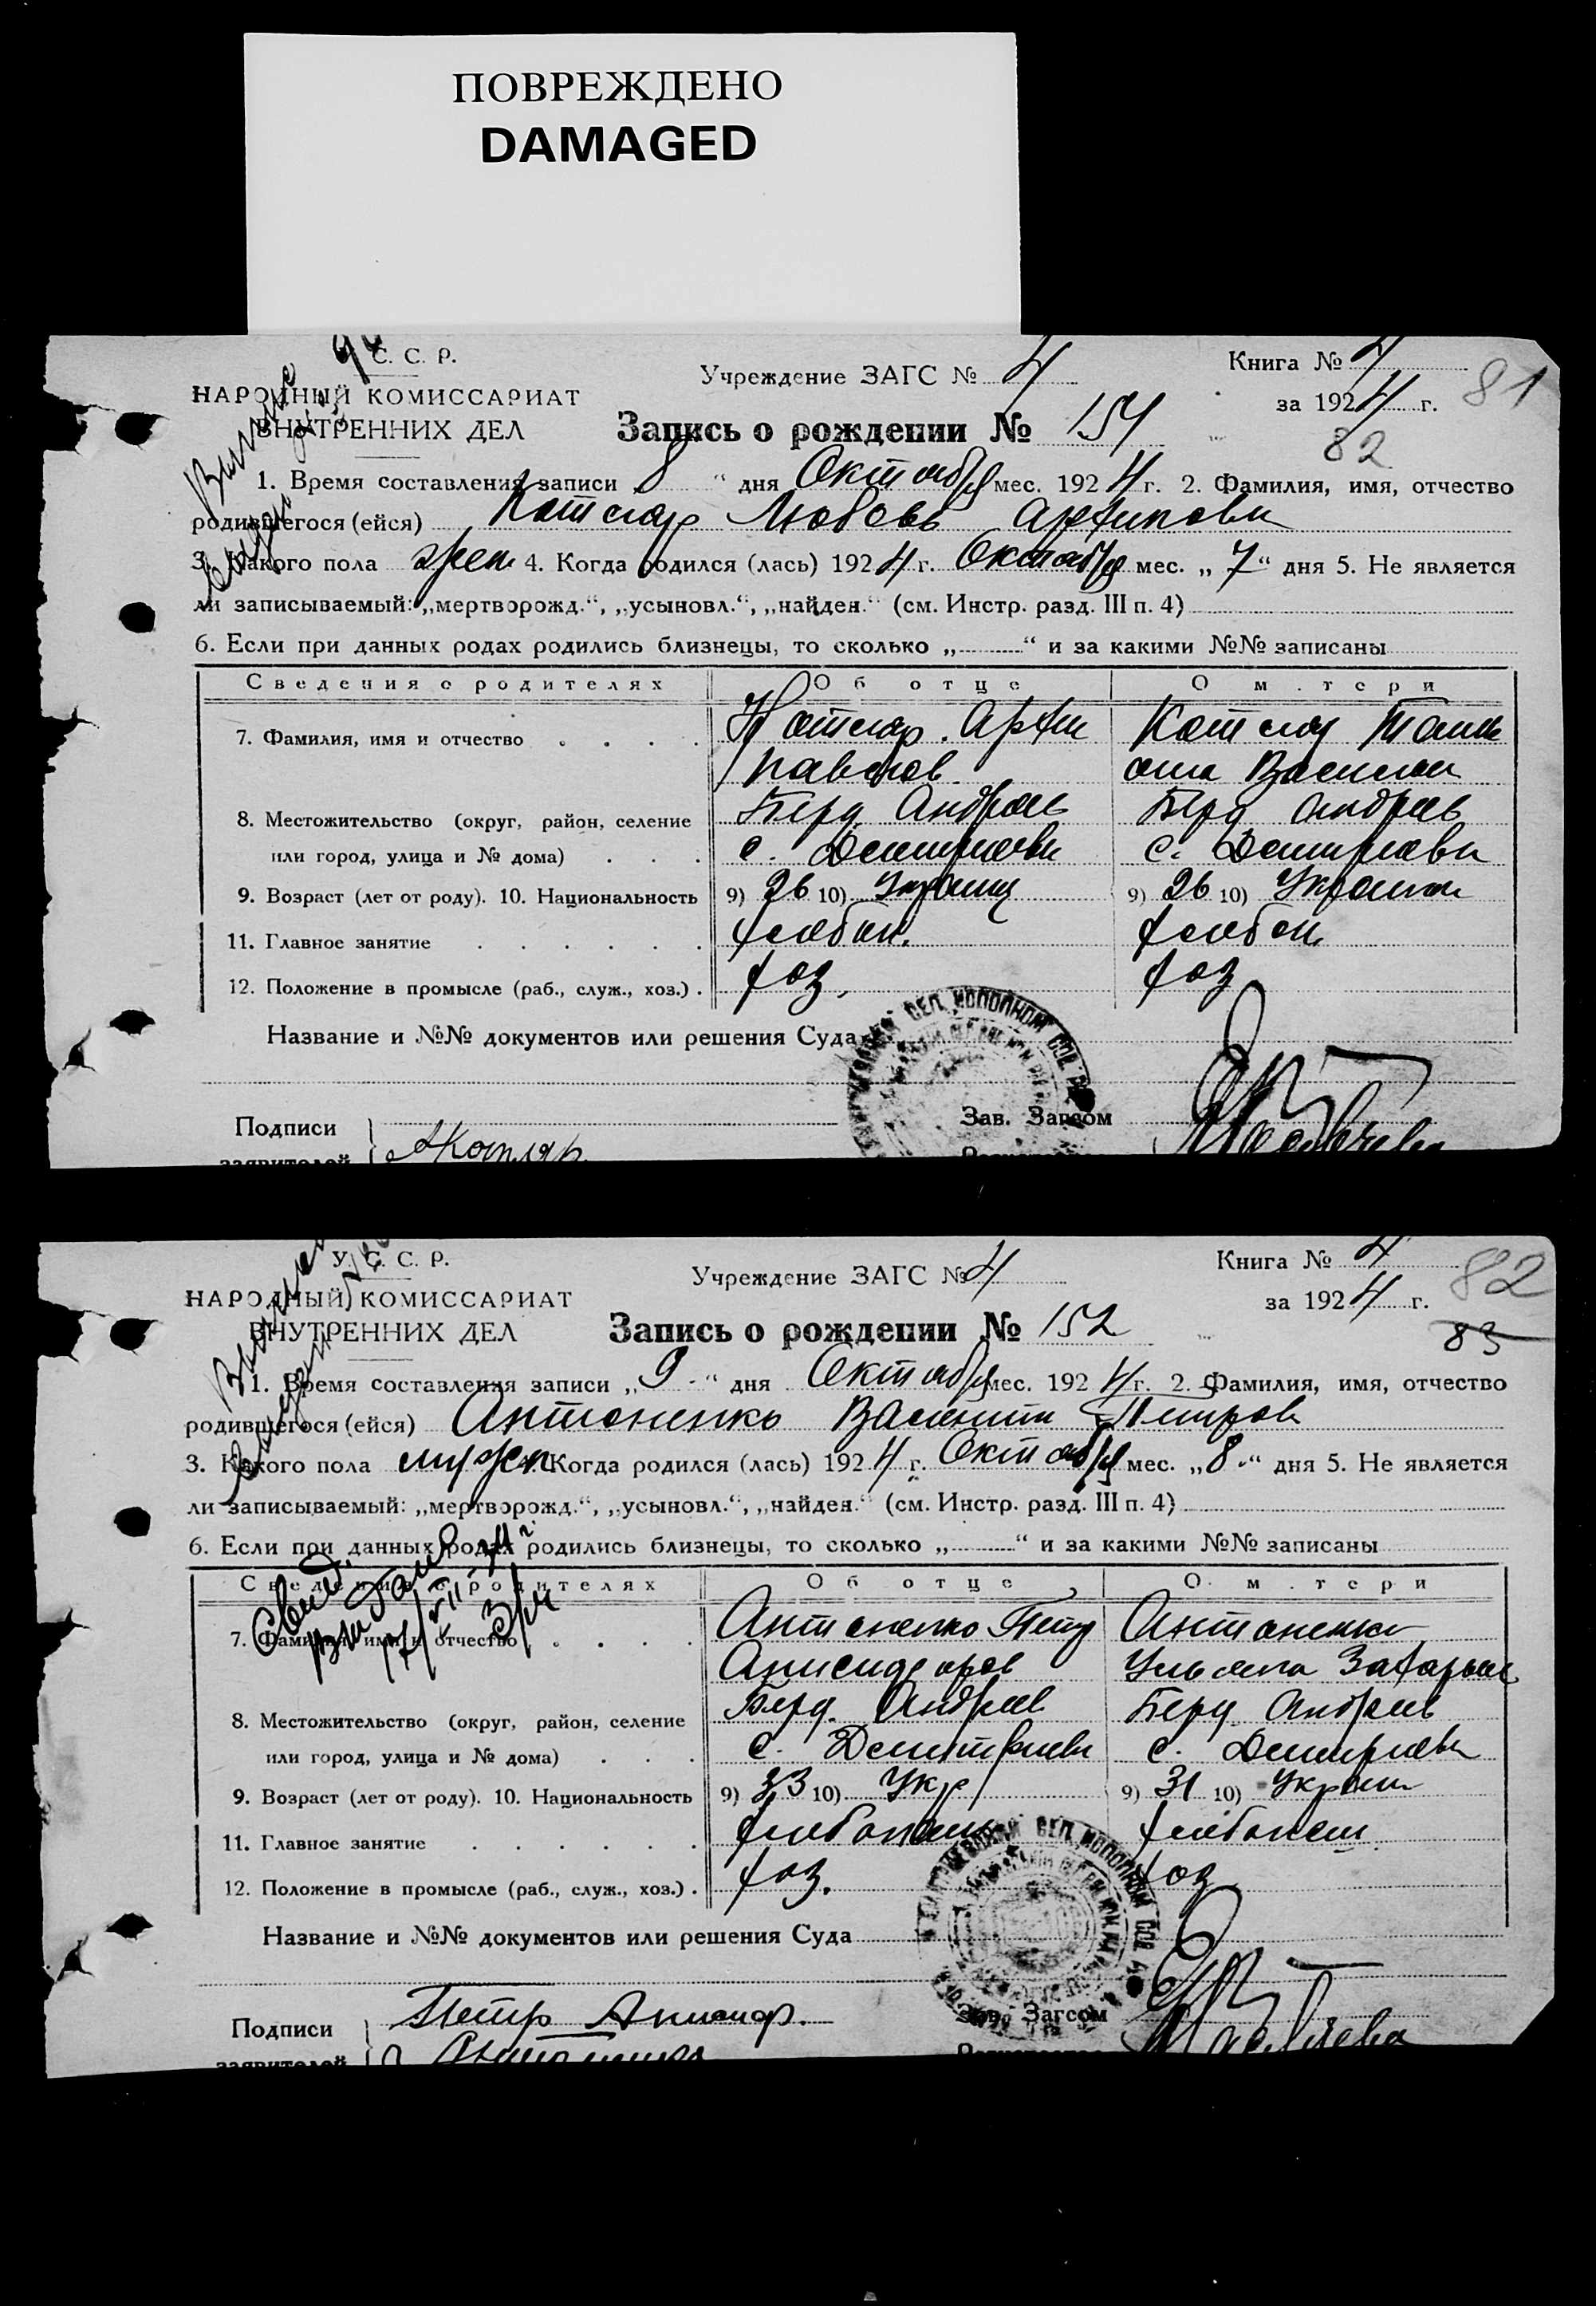 ПОВРЕЖДЕНО
DAMAGED
С. С. Р.
НАРОДНЫЙ КОМИССАРИАТ
ВНУТРЕННИХ ДЕЛ
Учреждение ЗАГС № 4
Книга № 4
за 1924 г.
81
82
Запись о рождении № 151
1. Время составления записи 8 " дня Октября мес. 1924 г. 2. Фамилия, имя, отчество
родившегося (ейся) Котляр Любовь Архипови
3. Какого пола жен 4. Когда родился (лась) 1924 г. Октября мес. „ 7 " дня 5. Не является
ли записываемый: „мертворожд.“, „усыновл.“, „найден.“ (см. Инстр. разд. III п. 4)
6. Если при данных родах родились близнецы, то сколько „ “ и за какими №№ записаны
Сведения о родителях Об отце О м тери
7. Фамилия, имя и отчество Котляр Архи Котляр Тать
Павлов яна Васильев
8. Местожительство (округ, район, селение Берд. Андреев Берд Андреев
или город, улица и № дома) с. Дмитриевк с. Дмитриевк
9. Возраст (лет от роду). 10. Национальность 9) 26 10) Украинц 9) 26 10) Украинк
11. Главное занятие хлебоп. хлебоп
12. Положение в промысле (раб., служ., хоз.) хоз. хоз
Название и №№ документов или решения Суда
СЕЛ. ИСПОЛНОМ
Подписи
Зав. Загсом
заявителей Котляр
У. С. С. Р.
НАРОДНЫЙ КОМИССАРИАТ
ВНУТРЕННИХ ДЕЛ
Учреждение ЗАГС № 4
Книга № 4
за 1924 г.
82
83
Запись о рождении № 152
1. Время составления записи „ 9 " дня Октября мес. 1924 г. 2. Фамилия, имя, отчество
родившегося (ейся) Антоненко Валентин Петров
3. Какого пола мужск Когда родился (лась) 1924 г. Октября мес. „ 8 " дня 5. Не является
ли записываемый: „мертворожд.“, „усыновл.“, „найден.“ (см. Инстр. разд. III п. 4)
6. Если при данных родах родились близнецы, то сколько „ “ и за какими №№ записаны
Свид.
Сведения о родителях Об отце О м тери
7. Фамилия, имя и отчество Антоненко Петр Антоненко
Анисидоров Ульяна Захарьев
8. Местожительство (округ, район, селение Берд. Андреев Берд Андреев
или город, улица и № дома) с. Дмитриевк с. Дмитриевк
9. Возраст (лет от роду). 10. Национальность 9) 33 10) Укр 9) 31 10) Украин
11. Главное занятие хлебопаш хлебопаш
12. Положение в промысле (раб., служ., хоз.) хоз. хоз
Название и №№ документов или решения Суда
СЕЛ. ИСПОЛНОМ
Подписи Петр
Зав. Загсом
заявителей Антоненко